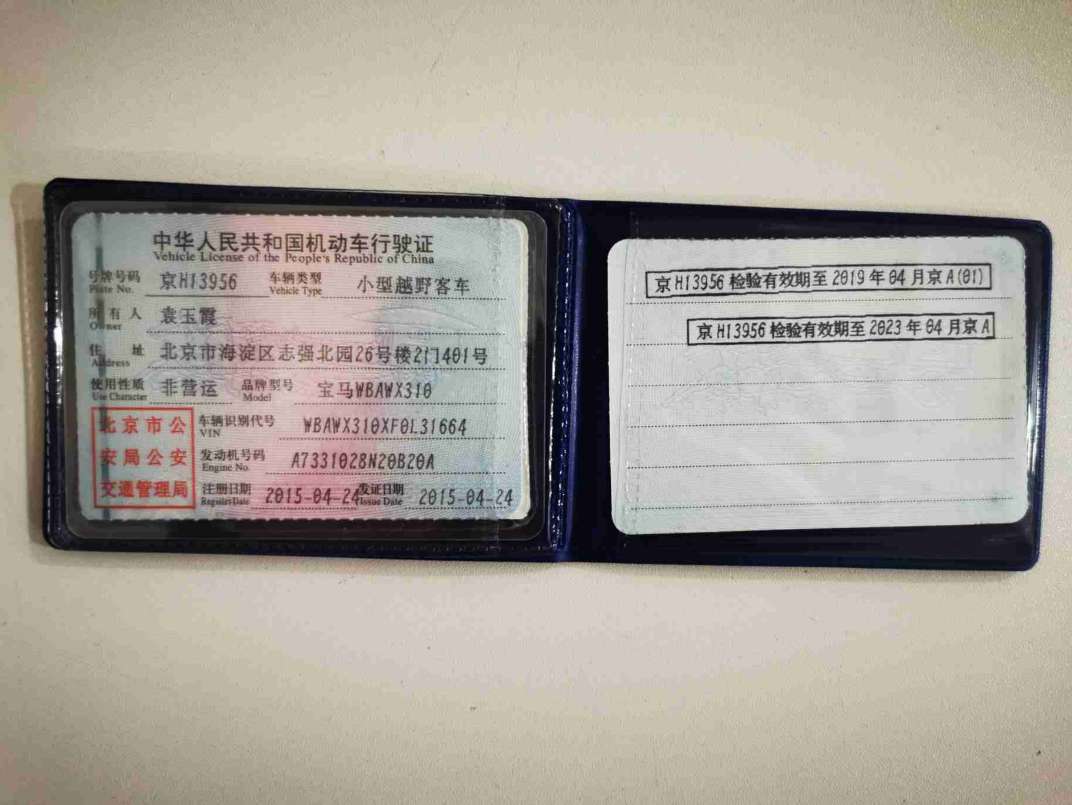 中华人民共和国机动车行驶证
Vehicle License of the People's Republic of China
号牌号码 京H13956 车辆类型 小型越野客车
Plate No. Vehicle Type
所有人 袁玉霞
Owner
住址 北京市海淀区志强北园26号楼2门401号
Address
使用性质 非营运 品牌型号 宝马WBAWX310
Use Character Model
北京市公安局公安交通管理局
车辆识别代号 WBAWX310XF0L31664
VIN
发动机号码 A7331028N20B20A
Engine No.
注册日期 2015-04-24 发证日期 2015-04-24
Register Date Issue Date
京H13956检验有效期至2019年04月京A(01)
京H13956检验有效期至2023年04月京A